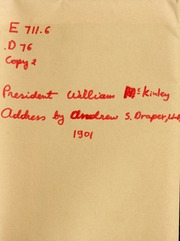 E 711.6
.D 76
Copy 2
President William McKinley
Address by Andrew S. Draper,
1901